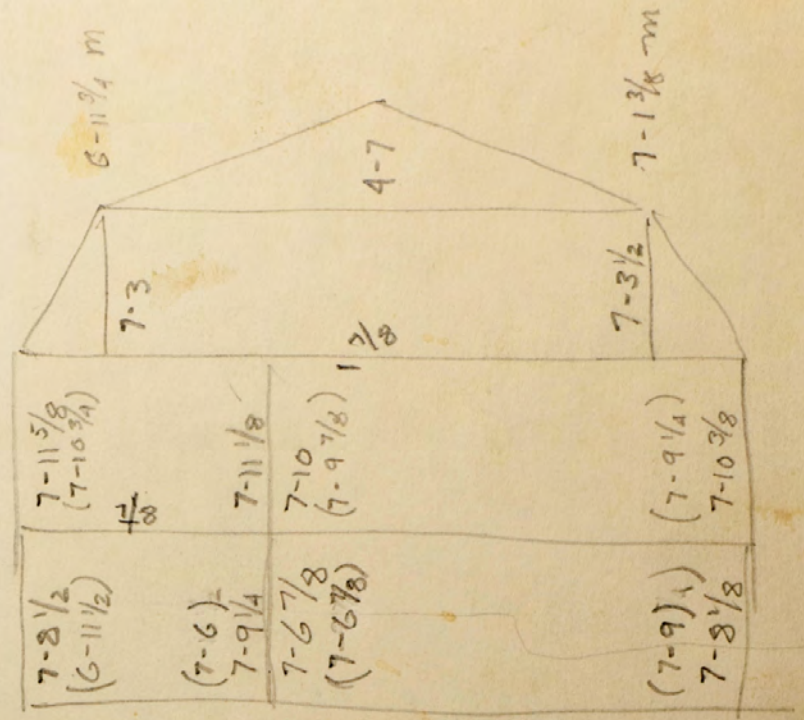 6-11 3/4 m
7-1 3/8 m
4-7
7-3
7-3 1/2
1 7/8
7-11 5/8
(7-10 3/4)
7/8
7-11 1/8
7-10
(7-9 7/8)
(7-9 1/4)
7-10 3/8
7-8 1/2
(6-11 1/2)
(7-6)
7-9 1/4
7-6 7/8
(7-6 7/8)
(7-9)
7-8 1/8